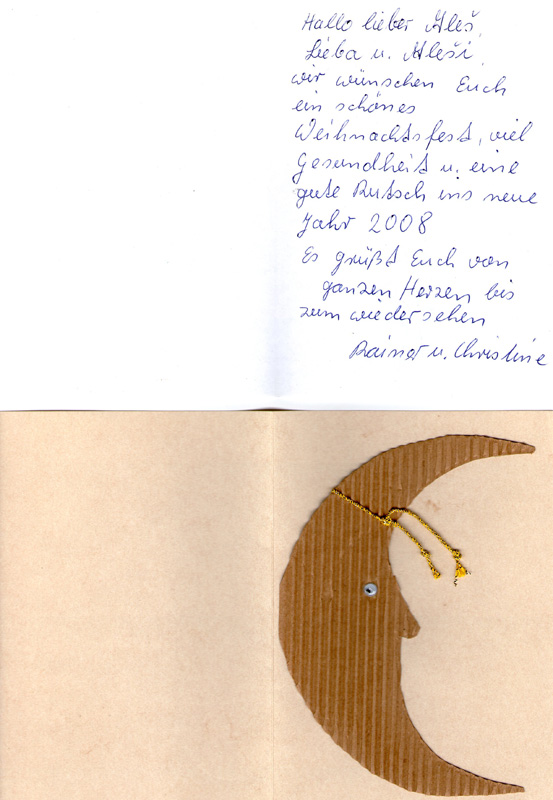 Hallo lieber Aleš,
Lieba u. Aleši,
wir wünschen Euch
ein schönes
Weihnachtsfest, viel
Gesundheit u. eine
gute Rutsch ins neue
Jahr 2008
Es grüßt Euch von
ganzen Herzen bis
zum wiedersehen
Rainer u. Christine